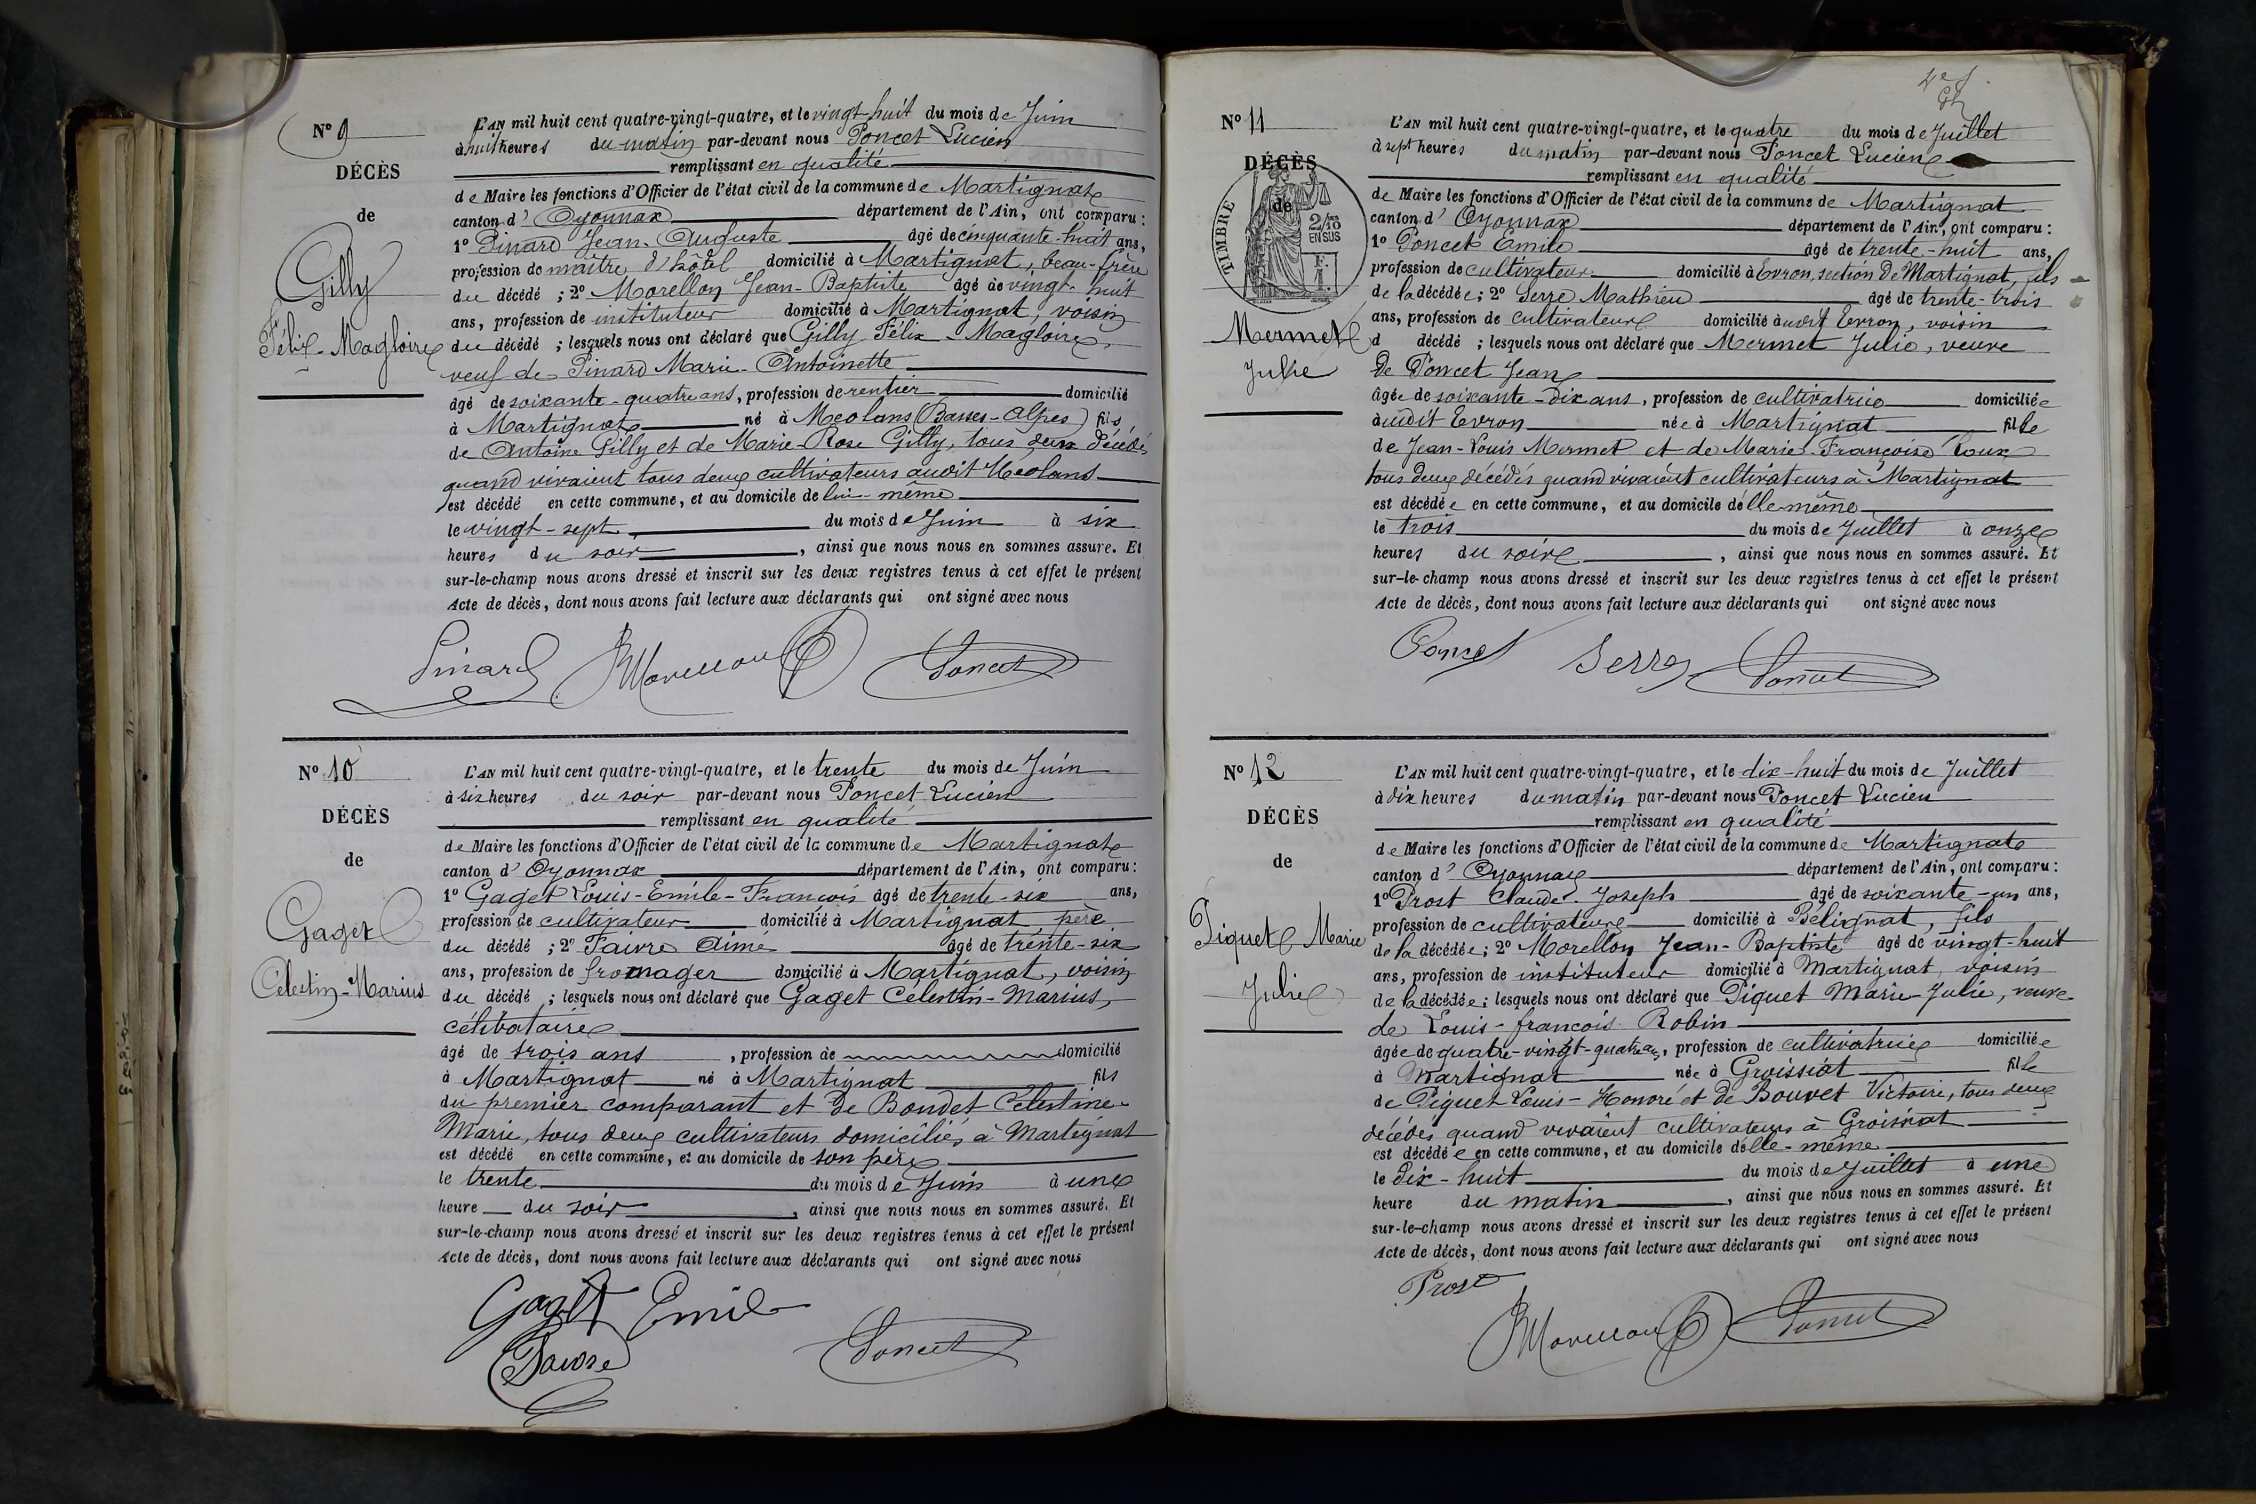 N° 9
DÉCÈS
de
Gilly
Félix-Magloire
L'AN mil huit cent quatre-vingt-quatre, et le vingt-huit du mois de Juin
à huit heures du matin par-devant nous Poncet Lucien
remplissant en qualité
de Maire les fonctions d'Officier de l'état civil de la commune de Martignat
canton d'Oyonnax département de l'Ain, ont comparu :
1° Pinard Jean-Auguste âgé de cinquante-huit ans,
profession de maître d'hôtel domicilié à Martignat, beau-frère
du décédé ; 2° Morellon Jean-Baptiste âgé de vingt-huit
ans, profession de instituteur domicilié à Martignat, voisin
du décédé ; lesquels nous ont déclaré que Gilly Félix-Magloire,
veuf de Pinard Marie-Antoinette
âgé de soixante-quatre ans, profession de rentier domicilié
à Martignat né à Meolans (Basses-Alpes) fils
de Antoine Gilly et de Marie-Rose Gilly, tous deux décédés
quand vivaient tous deux cultivateurs audit Meolans
est décédé en cette commune, et au domicile de lui-même
le vingt-sept du mois de Juin à six
heures du soir, ainsi que nous nous en sommes assuré. Et
sur-le-champ nous avons dressé et inscrit sur les deux registres tenus à cet effet le présent
Acte de décès, dont nous avons fait lecture aux déclarants qui ont signé avec nous
Pinard Morellon Poncet
N° 10
DÉCÈS
de
Gaget
Célestin-Marius
L'AN mil huit cent quatre-vingt-quatre, et le trente du mois de Juin
à six heures du soir par-devant nous Poncet Lucien
remplissant en qualité
de Maire les fonctions d'Officier de l'état civil de la commune de Martignat
canton d'Oyonnax département de l'Ain, ont comparu :
1° Gaget Louis-Emile-François âgé de trente-six ans,
profession de cultivateur domicilié à Martignat père
du décédé ; 2° Faivre Aimé âgé de trente-six
ans, profession de fromager domicilié à Martignat, voisin
du décédé ; lesquels nous ont déclaré que Gaget Célestin-Marius,
célibataire
âgé de trois ans, profession de domicilié
à Martignat né à Martignat fils
du premier comparant et de Boudet Célestine-
Marie, tous deux cultivateurs domiciliés à Martignat
est décédé en cette commune, et au domicile de son père
le trente du mois de Juin à une
heure du soir, ainsi que nous nous en sommes assuré. Et
sur-le-champ nous avons dressé et inscrit sur les deux registres tenus à cet effet le présent
Acte de décès, dont nous avons fait lecture aux déclarants qui ont signé avec nous
Gaget Emile
Faivre Poncet
N° 11
DÉCÈS
de
TIMBRE
2/10
EN SUS
Mermet
Julie
L'AN mil huit cent quatre-vingt-quatre, et le quatre du mois de Juillet
à sept heures du matin par-devant nous Poncet Lucien
remplissant en qualité
de Maire les fonctions d'Officier de l'état civil de la commune de Martignat
canton d'Oyonnax département de l'Ain, ont comparu :
1° Poncet Emile âgé de trente-huit ans,
profession de cultivateur domicilié à Evron, section de Martignat, fils
de la décédée ; 2° Serre Mathieu âgé de trente-trois
ans, profession de cultivateur domicilié audit Evron, voisin
d décédé ; lesquels nous ont déclaré que Mermet Julie, veuve
de Poncet Jean
âgée de soixante-dix ans, profession de cultivatrice domiciliée
audit Evron née à Martignat fille
de Jean-Louis Mermet et de Marie-Françoise
tous deux décédés quand vivaient cultivateurs à Martignat
est décédée en cette commune, et au domicile d'elle-même
le trois du mois de Juillet à onze
heures du soir, ainsi que nous nous en sommes assuré. Et
sur-le-champ nous avons dressé et inscrit sur les deux registres tenus à cet effet le présent
Acte de décès, dont nous avons fait lecture aux déclarants qui ont signé avec nous
Poncet Serre Poncet
N° 12
DÉCÈS
de
Piquet Marie
Julie
L'AN mil huit cent quatre-vingt-quatre, et le dix-huit du mois de Juillet
à dix heures du matin par-devant nous Poncet Lucien
remplissant en qualité
de Maire les fonctions d'Officier de l'état civil de la commune de Martignat
canton d'Oyonnax département de l'Ain, ont comparu :
1° Prost Claude-Joseph âgé de soixante-un ans,
profession de cultivateur domicilié à Bélignat, fils
de la décédée ; 2° Morellon Jean-Baptiste âgé de vingt-huit
ans, profession de instituteur domicilié à Martignat, voisin
de la décédée ; lesquels nous ont déclaré que Piquet Marie-Julie, veuve
de Louis-françois Robin
âgée de quatre-vingt-quatre ans, profession de cultivatrice domiciliée
à Martignat née à Groissiat fille
de Piquet Louis-Honoré et de Bouvet Victoire, tous deux
décédés quand vivaient cultivateurs à Groissiat
est décédée en cette commune, et au domicile d'elle-même
le dix-huit du mois de Juillet à une
heure du matin, ainsi que nous nous en sommes assuré. Et
sur-le-champ nous avons dressé et inscrit sur les deux registres tenus à cet effet le présent
Acte de décès, dont nous avons fait lecture aux déclarants qui ont signé avec nous
Prost
Morellon Poncet